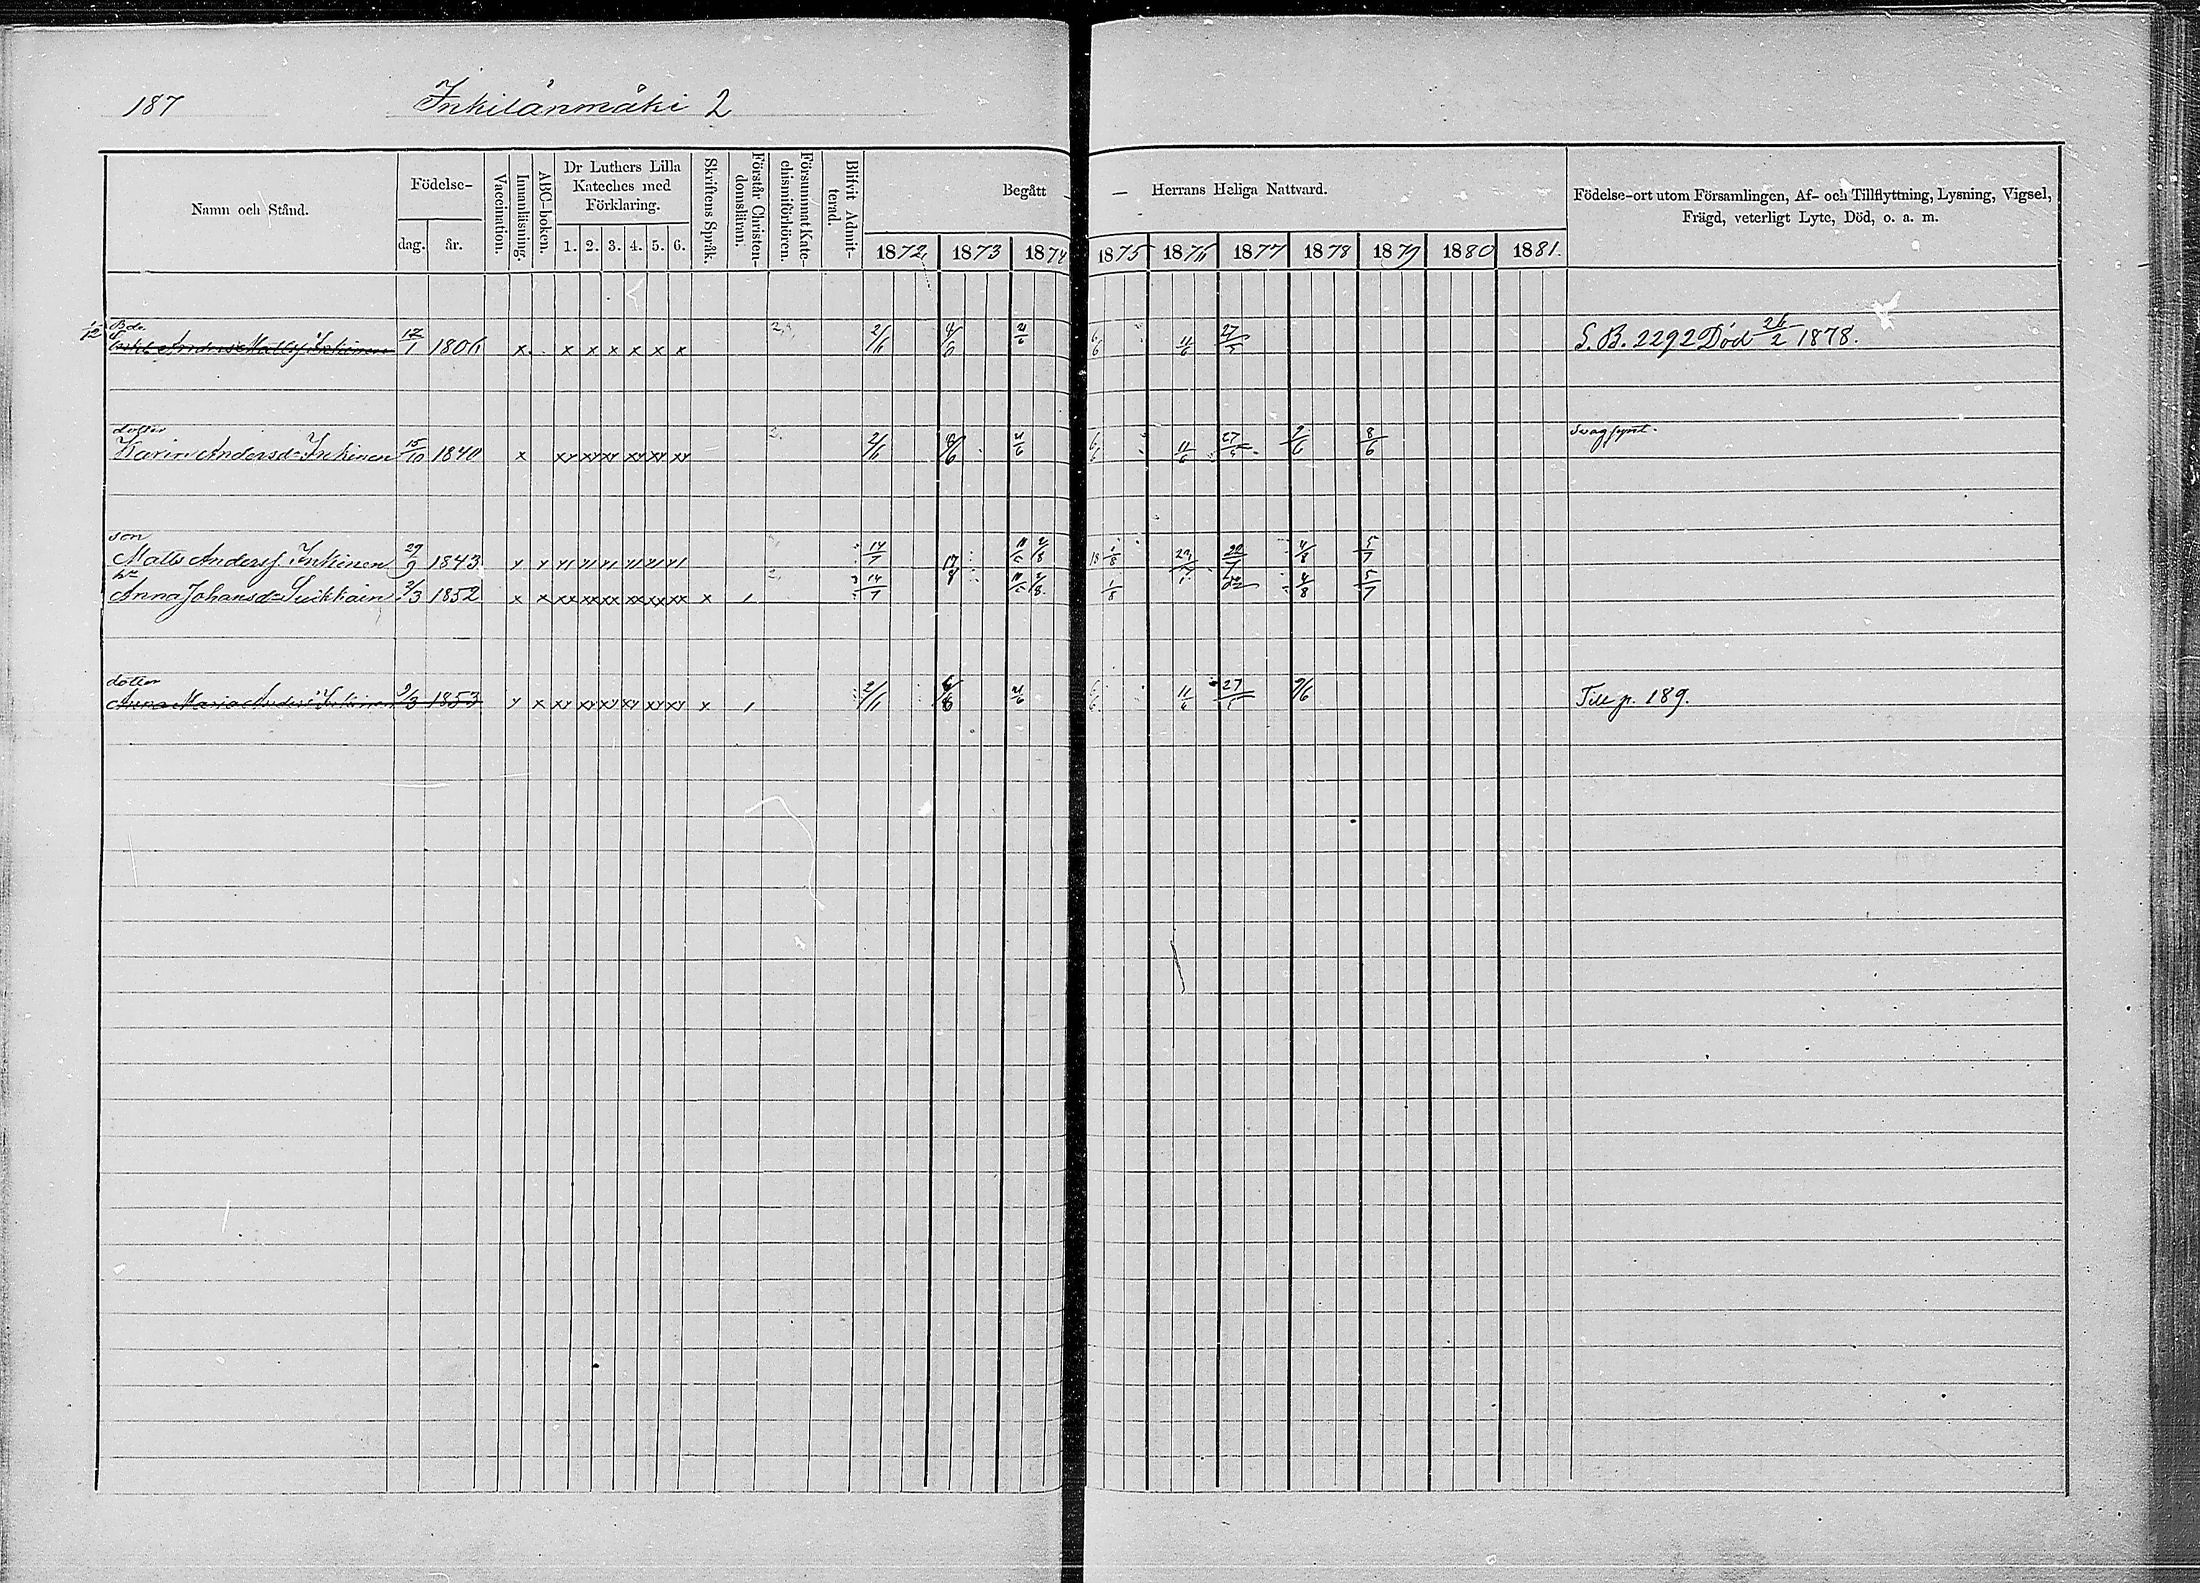 187 Inkilänmäki 2
Namn och Stånd. Födelse- dag. år. Vaccination. Innanläsning. ABC-boken. Dr Luthers Lilla Kateches med Förklaring. 1. 2. 3. 4. 5. 6. Skriftens Språk. Förstår Christendomsläran. Försummat Katechismiförhören. Blifvit Admitterad. Begått — Herrans Heliga Nattvard. 1872 1873 1874 1875 1876 1877 1878 1879 1880 1881. Födelse-ort utom Församlingen, Af- och Tillflyttning, Lysning, Vigsel, Frägd, veterligt Lyte, Död, o. a. m.
Bde.
Anders Inkinen 12/1 1806 x x x x x x x 27/5 S. B. 2292 Död 26/2 1878.
dotter Svagsynt.
Karin Andersdr Inkinen 15/10 1840 x xx xx xx xx xx xx 27/5 9/6 8/6
son
Matts Andersf. Inkinen 29/9 1843 14/7 4/8 5/7
hu
Anna Johansdr Suikkain 2/3 1852 x x xx xx xx xx xx xx x 14/7 1/8 4/8 5/7
dotter
Anna Maria Andersdr Inkinen 9/3 1853 x 11/6 27/5 9/6 Till p. 189.